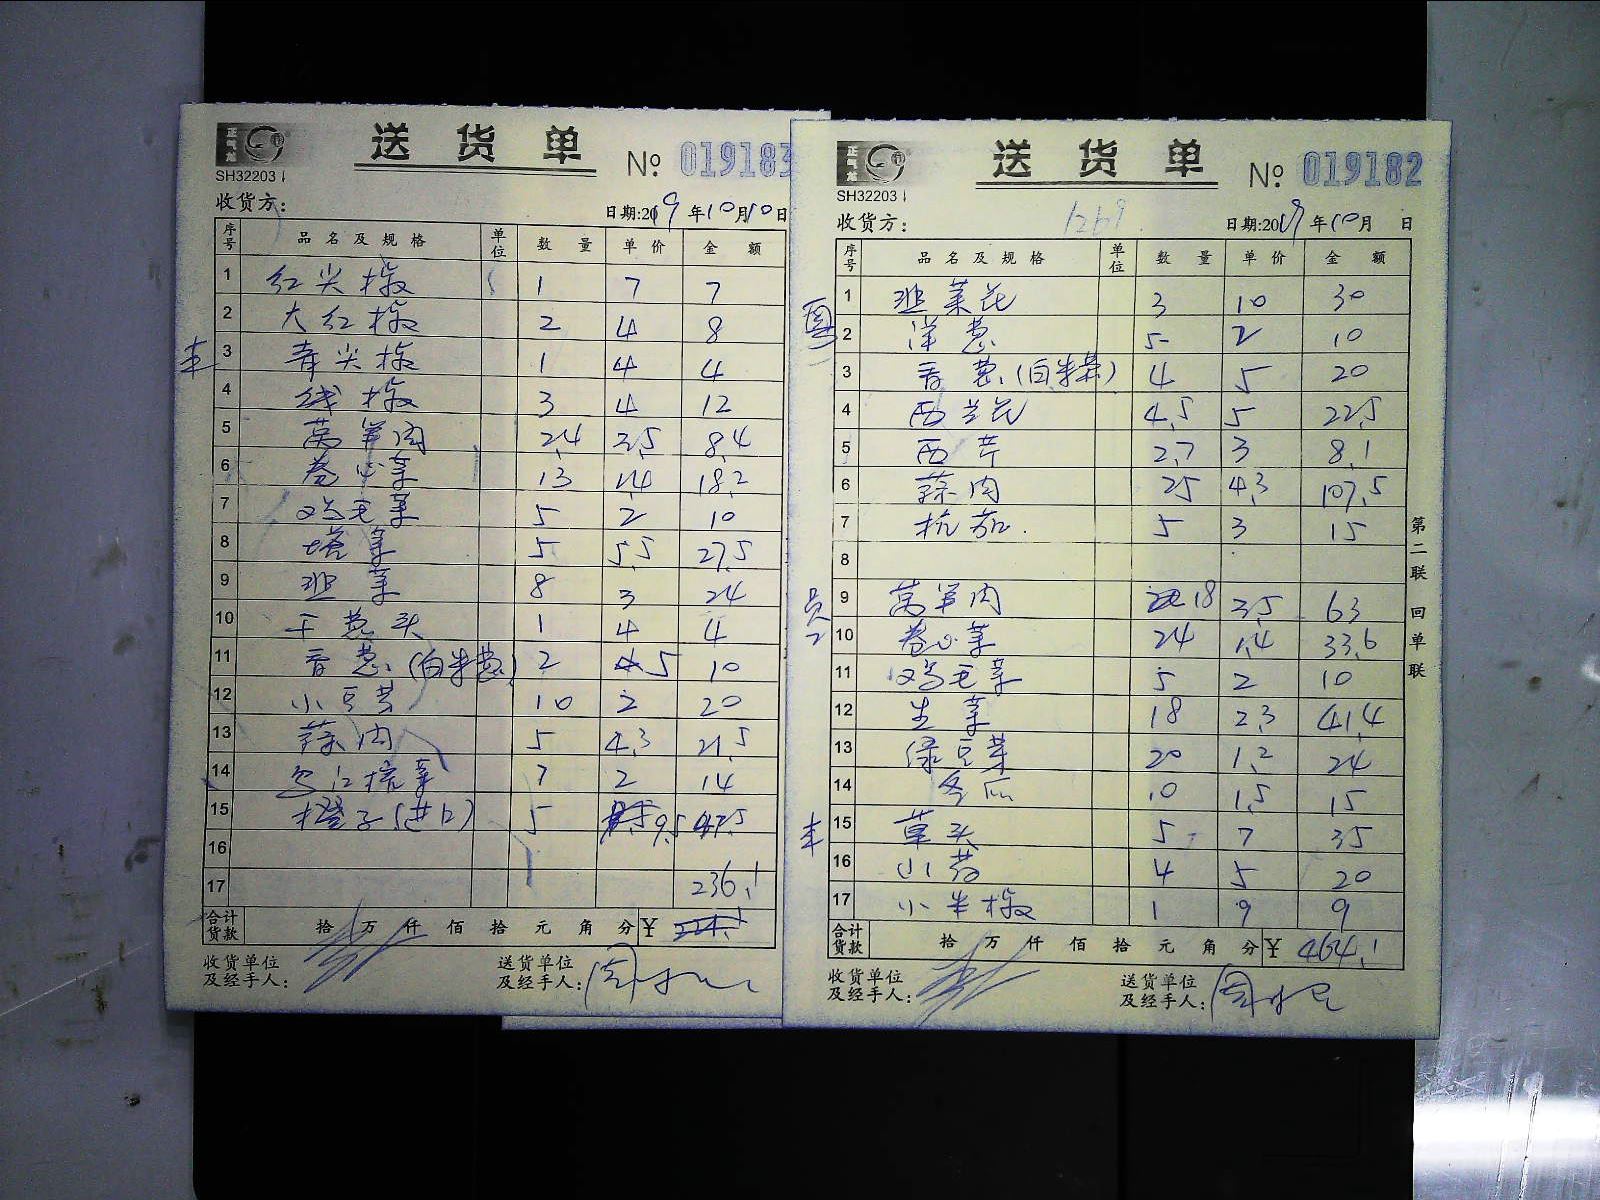 正气龙
送 货 单
№ 019183
SH32203
收货方：
日期:2019年10月10日
序号 品名及规格 单位 数量 单价 金额
1 红尖椒 1 7 7
2 大红椒 2 4 8
丰 3 青尖椒 1 4 4
4 线椒 3 4 12
5 莴笋肉 2.4 3.5 8.4
6 卷心菜 13 1.4 18.2
7 鸡毛菜 5 2 10
8 塔菜 5 5.5 27.5
9 韭菜 8 3 24
10 干葱头 1 4 4
11 香葱(白米葱) 2 5 10
12 小豆苗 10 2 20
13 蒜肉 5 4.3 21.5
14 7 2 14
15 橙子(进口) 5 9.5 47.5
16
17 236.1
合计货款 拾 万 仟 佰 拾 元 角 分 ¥ 221.1
收货单位及经手人：
送货单位及经手人：
正气龙
送 货 单
№ 019182
SH32203
收货方： 1269
日期:2019年10月 日
序号 品名及规格 单位 数量 单价 金额
1 韭菜花 3 10 30
2 洋葱 5 2 10
3 香葱(白米葱) 4 5 20
4 西兰花 4.5 5 22.5
5 西芹 2.7 3 8.1
6 蒜肉 25 4.3 107.5
7 杭茄 5 3 15
8
9 莴笋肉 18 3.5 63
10 卷心菜 24 1.4 33.6
11 鸡毛菜 5 2 10
12 生菜 18 2.3 41.4
13 绿豆芽 20 1.2 24
14 冬瓜 10 1.5 15
丰 15 草头 5 7 35
16 小 4 5 20
17 小米椒 1 9 9
合计货款 拾 万 仟 佰 拾 元 角 分 ¥ 464.1
收货单位及经手人：
送货单位及经手人：
第二联 回单联